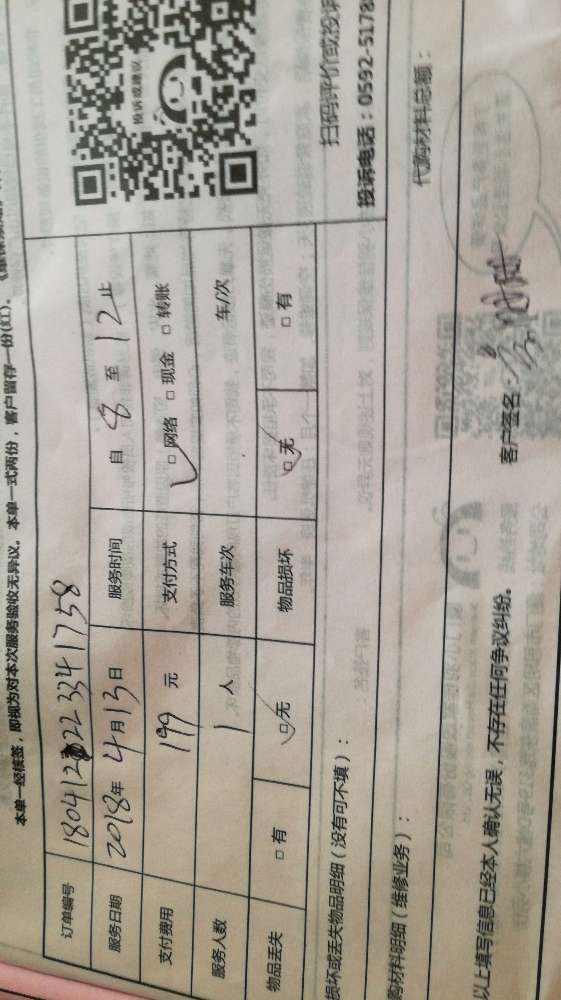 本单一经核签，即视为对本次服务验收无异议。本单一式两份，客户留存一份(红)。
订单编号 180412223341758
服务日期 2018年4月13日 服务时间 自 8 至 12 止
支付费用 199 元 支付方式 □网络 □现金 □转账
服务人数 1 人 服务车次 车/次
物品丢失 □有 □无 物品损坏 □无 □有
投诉或建议
扫码评价或投诉
投诉电话：0592-5178
损坏或丢失物品明细（没有可不填）：
购材料明细（维修业务）：
代购材料总额：
以上填写信息已经本人确认无误，不存在任何争议纠纷。
客户签名：